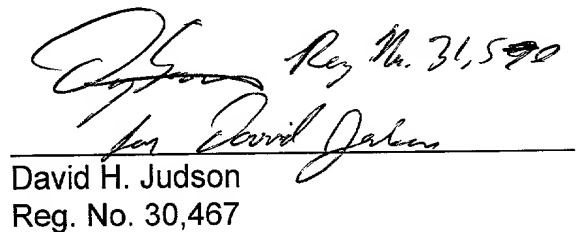 Reg No. 31,5
for David Judson
David H. Judson
Reg. No. 30,467